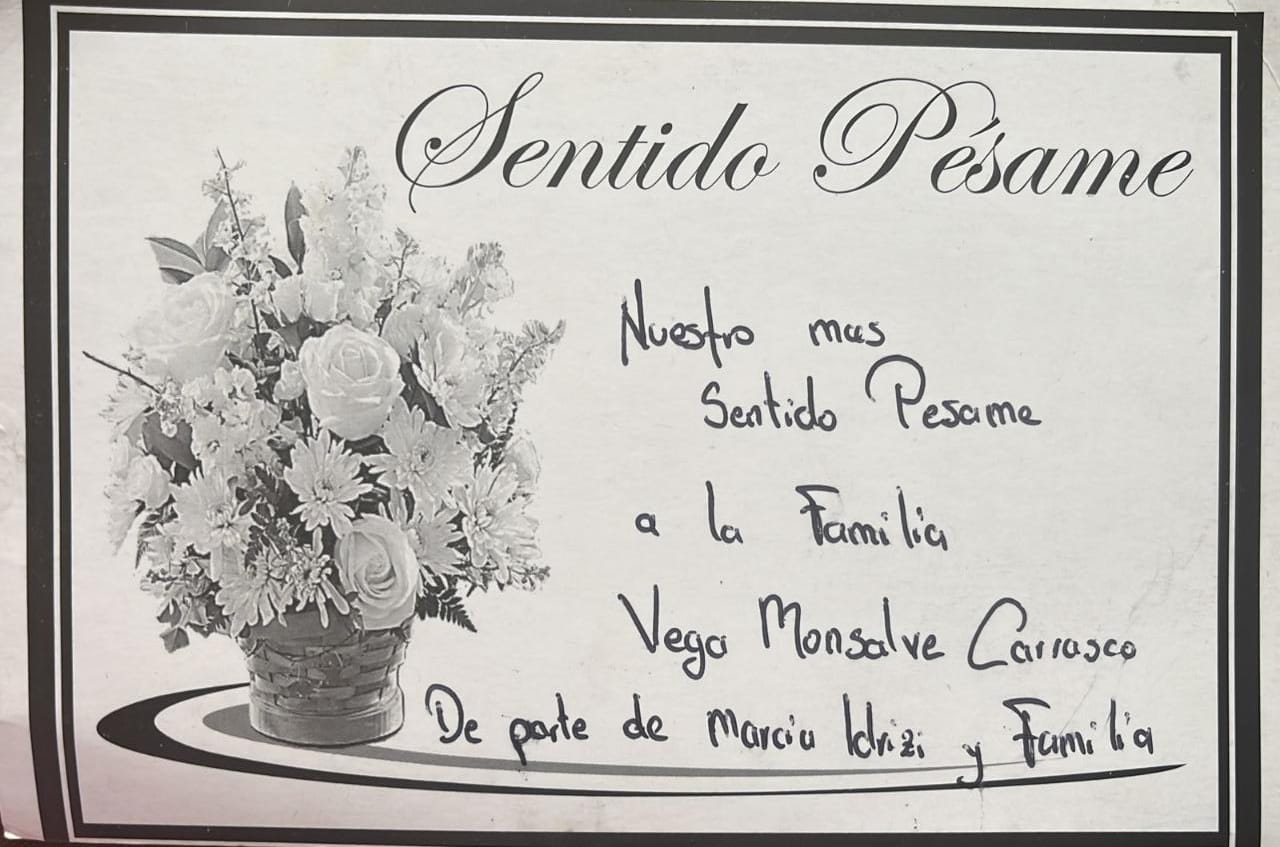 Sentido Pésame
Nuestro mas
Sentido Pesame
a la Familia
Vega Monsalve Carrasco
De parte de Marcia Idrizi y Familia